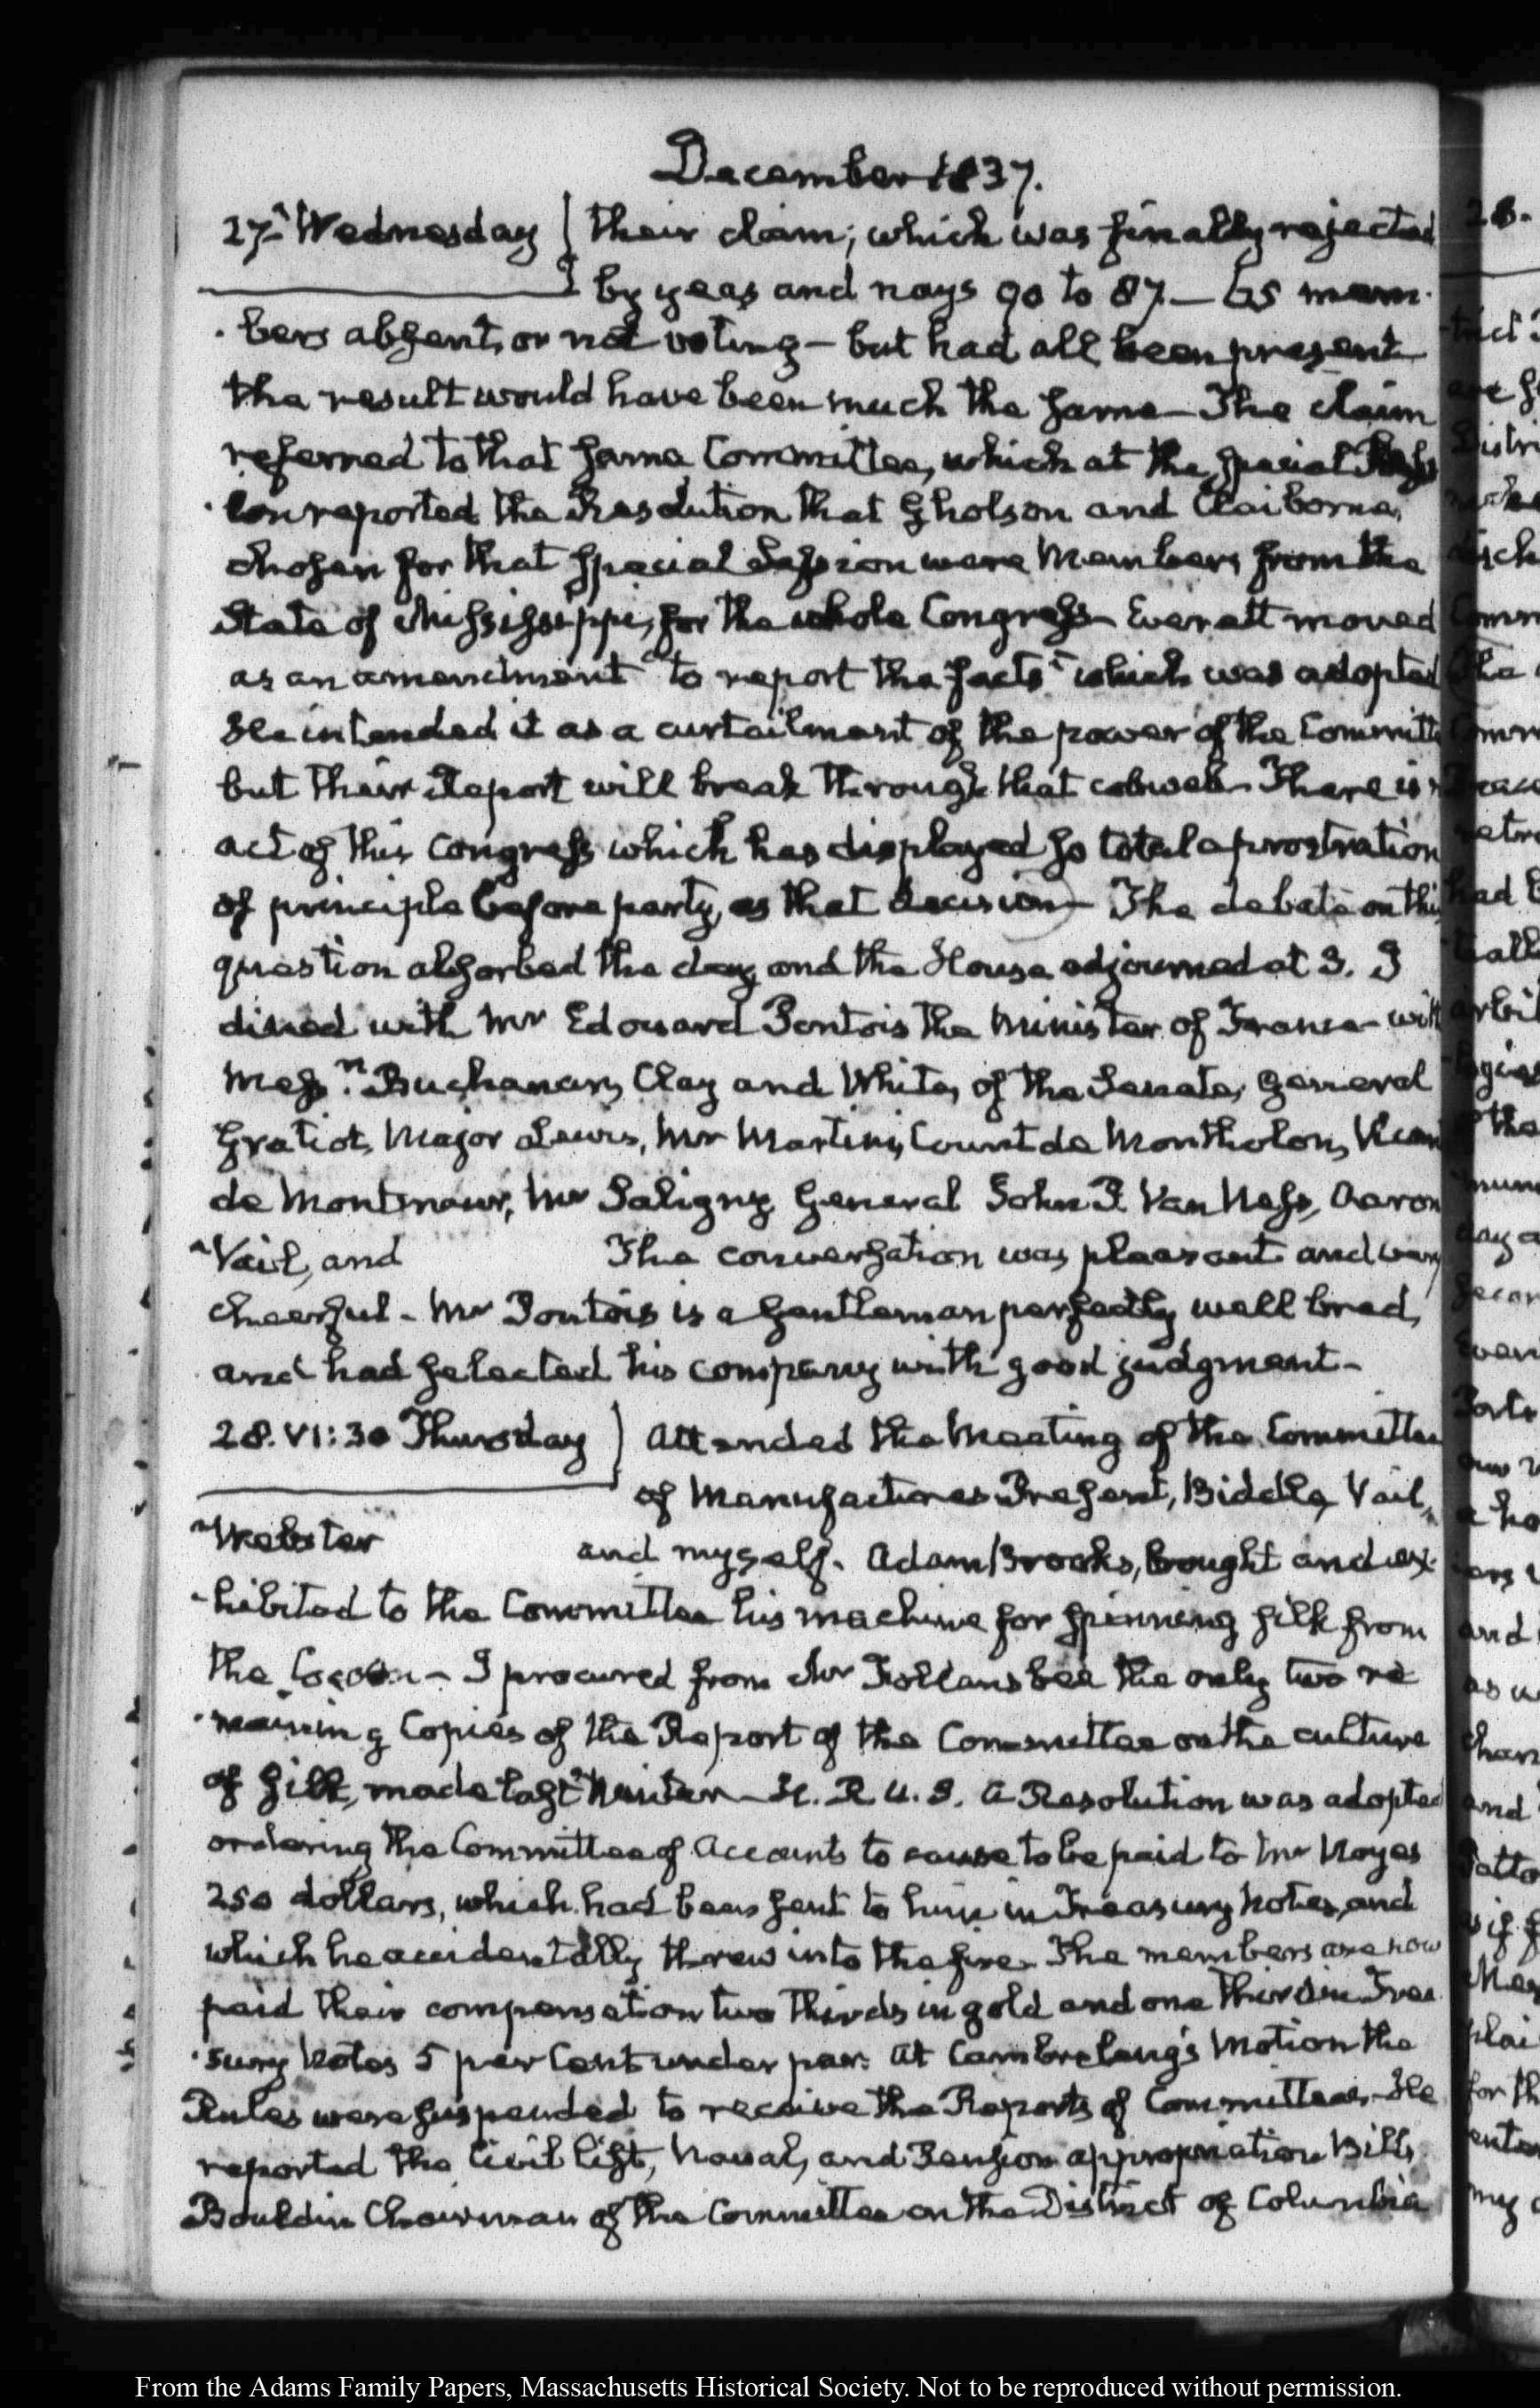 December 1837.
27. Wednesday } their claim; which was finally rejected
by yeas and nays 90 to 87 — 65 mem-
bers absent, or not voting — but had all been present
the result would have been much the same — The claim
referred to that same Committee, which at the special Sess
ion reported the Resolution that Gholson and Claiborne,
chosen for that special Session were Members from the
State of Mississippi, for the whole Congress — Everett moved
as an amendment "to report the facts" which was adopted
He intended it as a curtailment of the power of the Committ
but their Report will break through that cobweb. There is
act of this Congress which has displayed so total a prostration
of principle before party, as that decision — The debate on this
question absorbed the day, and the House adjourned at 3. I
dined with Mr Edouard Pontois the Minister of France with
Messrs. Buchanan, Clay and White, of the Senate, General
Gratiot, Major Lewis, Mr Martini, Count de Montholon,
de Montmaur, Mr Saligny, General John P. Van Ness, Aaron
Vail, and The conversation was pleasant and very
cheerful — Mr Pontois is a Gentleman perfectly well bred,
and had selected his company with good judgment —
28. VI:30 Thursday } Attended the Meeting of the Committee
of Manufactures Present, Biddle, Vail,
Webster and myself. Adam Brooks, brought and ex-
hibited to the Committee his machine for spinning silk from
the Cocoon — I procured from Mr Follansbee the only two re
maining Copies of the Report of the Committee on the culture
of Silk, made last Winter — H. R. U. S. A Resolution was adopted
ordering the Committee of Accounts to cause to be paid to Mr Noyes
250 dollars, which had been sent to him in Treasury Notes, and
which he accidentally threw into the fire. The members are now
paid their compensation two thirds in gold and one third in Trea
sury Notes 5 per Cent under par. At Cambreleng's Motion the
Rules were suspended to receive the Reports of Committees. He
reported the Civil list, Naval, and Pension appropriation Bills
Bouldin Chairman of the Committee on the District of Columbia
From the Adams Family Papers, Massachusetts Historical Society. Not to be reproduced without permission.